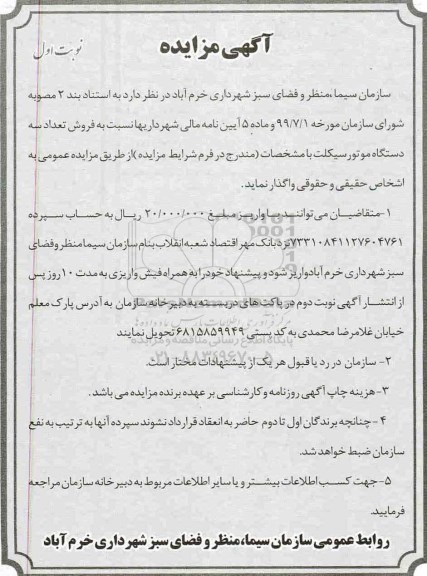 آگهی مزایده
نوبت اول
سازمان سیما،منظر و فضای سبز شهرداری خرم آباد در نظر دارد به استناد بند ۲ مصوبه
شورای سازمان مورخه ۹۹/۷/۱ و ماده ۵ آیین نامه مالی شهرداریها نسبت به فروش تعداد سه
دستگاه موتور سیکلت با مشخصات (مندرج در فرم شرایط مزایده )از طریق مزایده عمومی به
اشخاص حقیقی و حقوقی واگذار نماید.
۱-متقاضیان می توانند با واریز مبلغ ۲۰/۰۰۰/۰۰۰ ریال به حساب سپرده
۷۳۳۱۰۸۴۱۱۲۷۶۰۴۷۶۱نزد بانک مهر اقتصاد شعبه انقلاب بنام سازمان سیما منظر و فضای
سبز شهرداری خرم آبادواریز شود و پیشنهاد خود را به همراه فیش واریزی به مدت ۱۰روز پس
از انتشار آگهی نوبت دوم در پاکت های در بسته به دبیر خانه سازمان به آدرس پارک معلم
خیابان غلامرضا محمدی به کد پستی ۶۸۱۵۸۵۹۹۴۹تحویل نمایند
پایگاه اطلاع رسانی مناقصه و مزایده
۲- سازمان در رد یا قبول هر یک از پیشنهادات مختار است.
۳-هزینه چاپ آگهی روزنامه و کارشناسی بر عهده برنده مزایده می باشد.
۴-چنانچه برندگان اول تا دوم حاضر به انعقاد قرارداد نشوند سپرده آنها به ترتیب به نفع
سازمان ضبط خواهد شد.
۵-جهت کسب اطلاعات بیشتر و یا سایر اطلاعات مربوط به دبیر خانه سازمان مراجعه
فرمایید.
روابط عمومی سازمان سیما،منظر و فضای سبز شهرداری خرم آباد